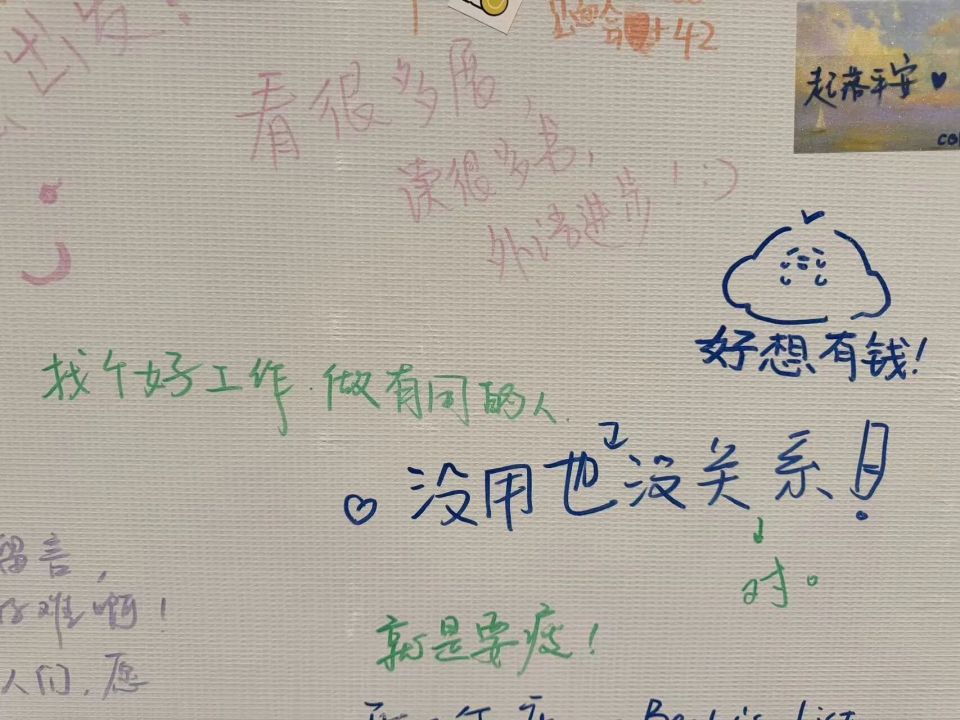 +42
起落平安
看很多展，
读很多书，
外语进步！:)
好想有钱！
找个好工作.做有同的人.
没用也没关系！
对。
留言，
好难啊！
人们，愿
就是要疯！